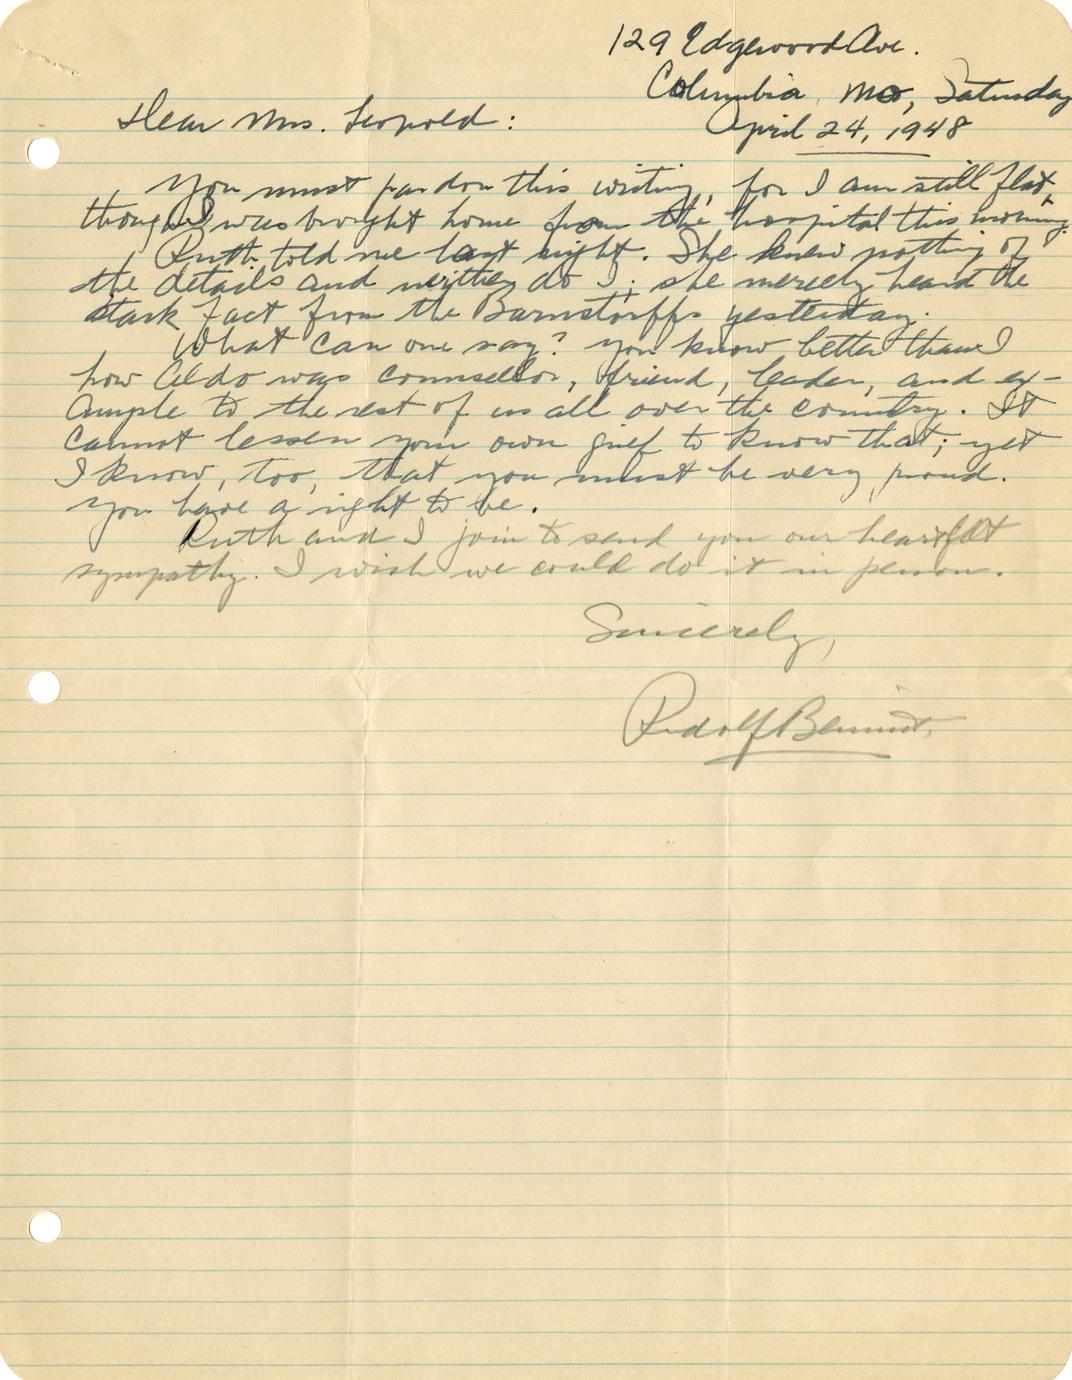 129 Edgewood Ave.
Columbia, Mo, Saturday
April 24, 1948
Dear Mrs. Leopold:
You must pardon this writing, for I am still flat,
though I was brought home from the hospital this morning.
Ruth told me last night. She knew nothing of
the details and neither do I; she merely heard the
stark fact from the Barnstorffs yesterday.
What can one say? You know better than I
how Aldo was counsellor, friend, leader, and ex-
ample to the rest of us all over the country. It
cannot lessen your own grief to know that; yet
I know, too, that you must be very proud.
You have a right to be.
Ruth and I join to send you our heartfelt
sympathy. I wish we could do it in person.
Sincerely,
Rudolf Bennitt.